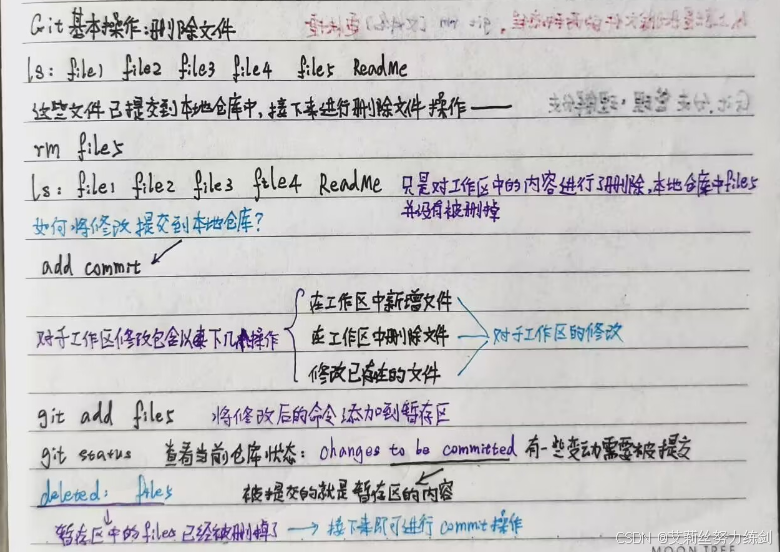 Git基本操作:删除文件
ls: file1 file2 file3 file4 file5 ReadMe
这些文件已提交到本地仓库中,接下来进行删除文件操作——
rm file5
ls: file1 file2 file3 file4 ReadMe 只是对工作区中的内容进行了删除,本地仓库中file5
并没有被删掉
如何将修改提交到本地仓库?
add commit
在工作区中新增文件
对于工作区修改包含以下几操作 在工作区中删除文件 对于工作区的修改
修改已存在的文件
git add file5 将修改后的命令添加到暂存区
git status 查看当前仓库状态: changes to be committed 有一些变动需要被提交
deleted: file5 被提交的就是暂存区的内容
暂存区中的file5已经被删掉了 → 接下来即可进行commit操作
CSDN @艾莉丝努力练剑
MOON TREE